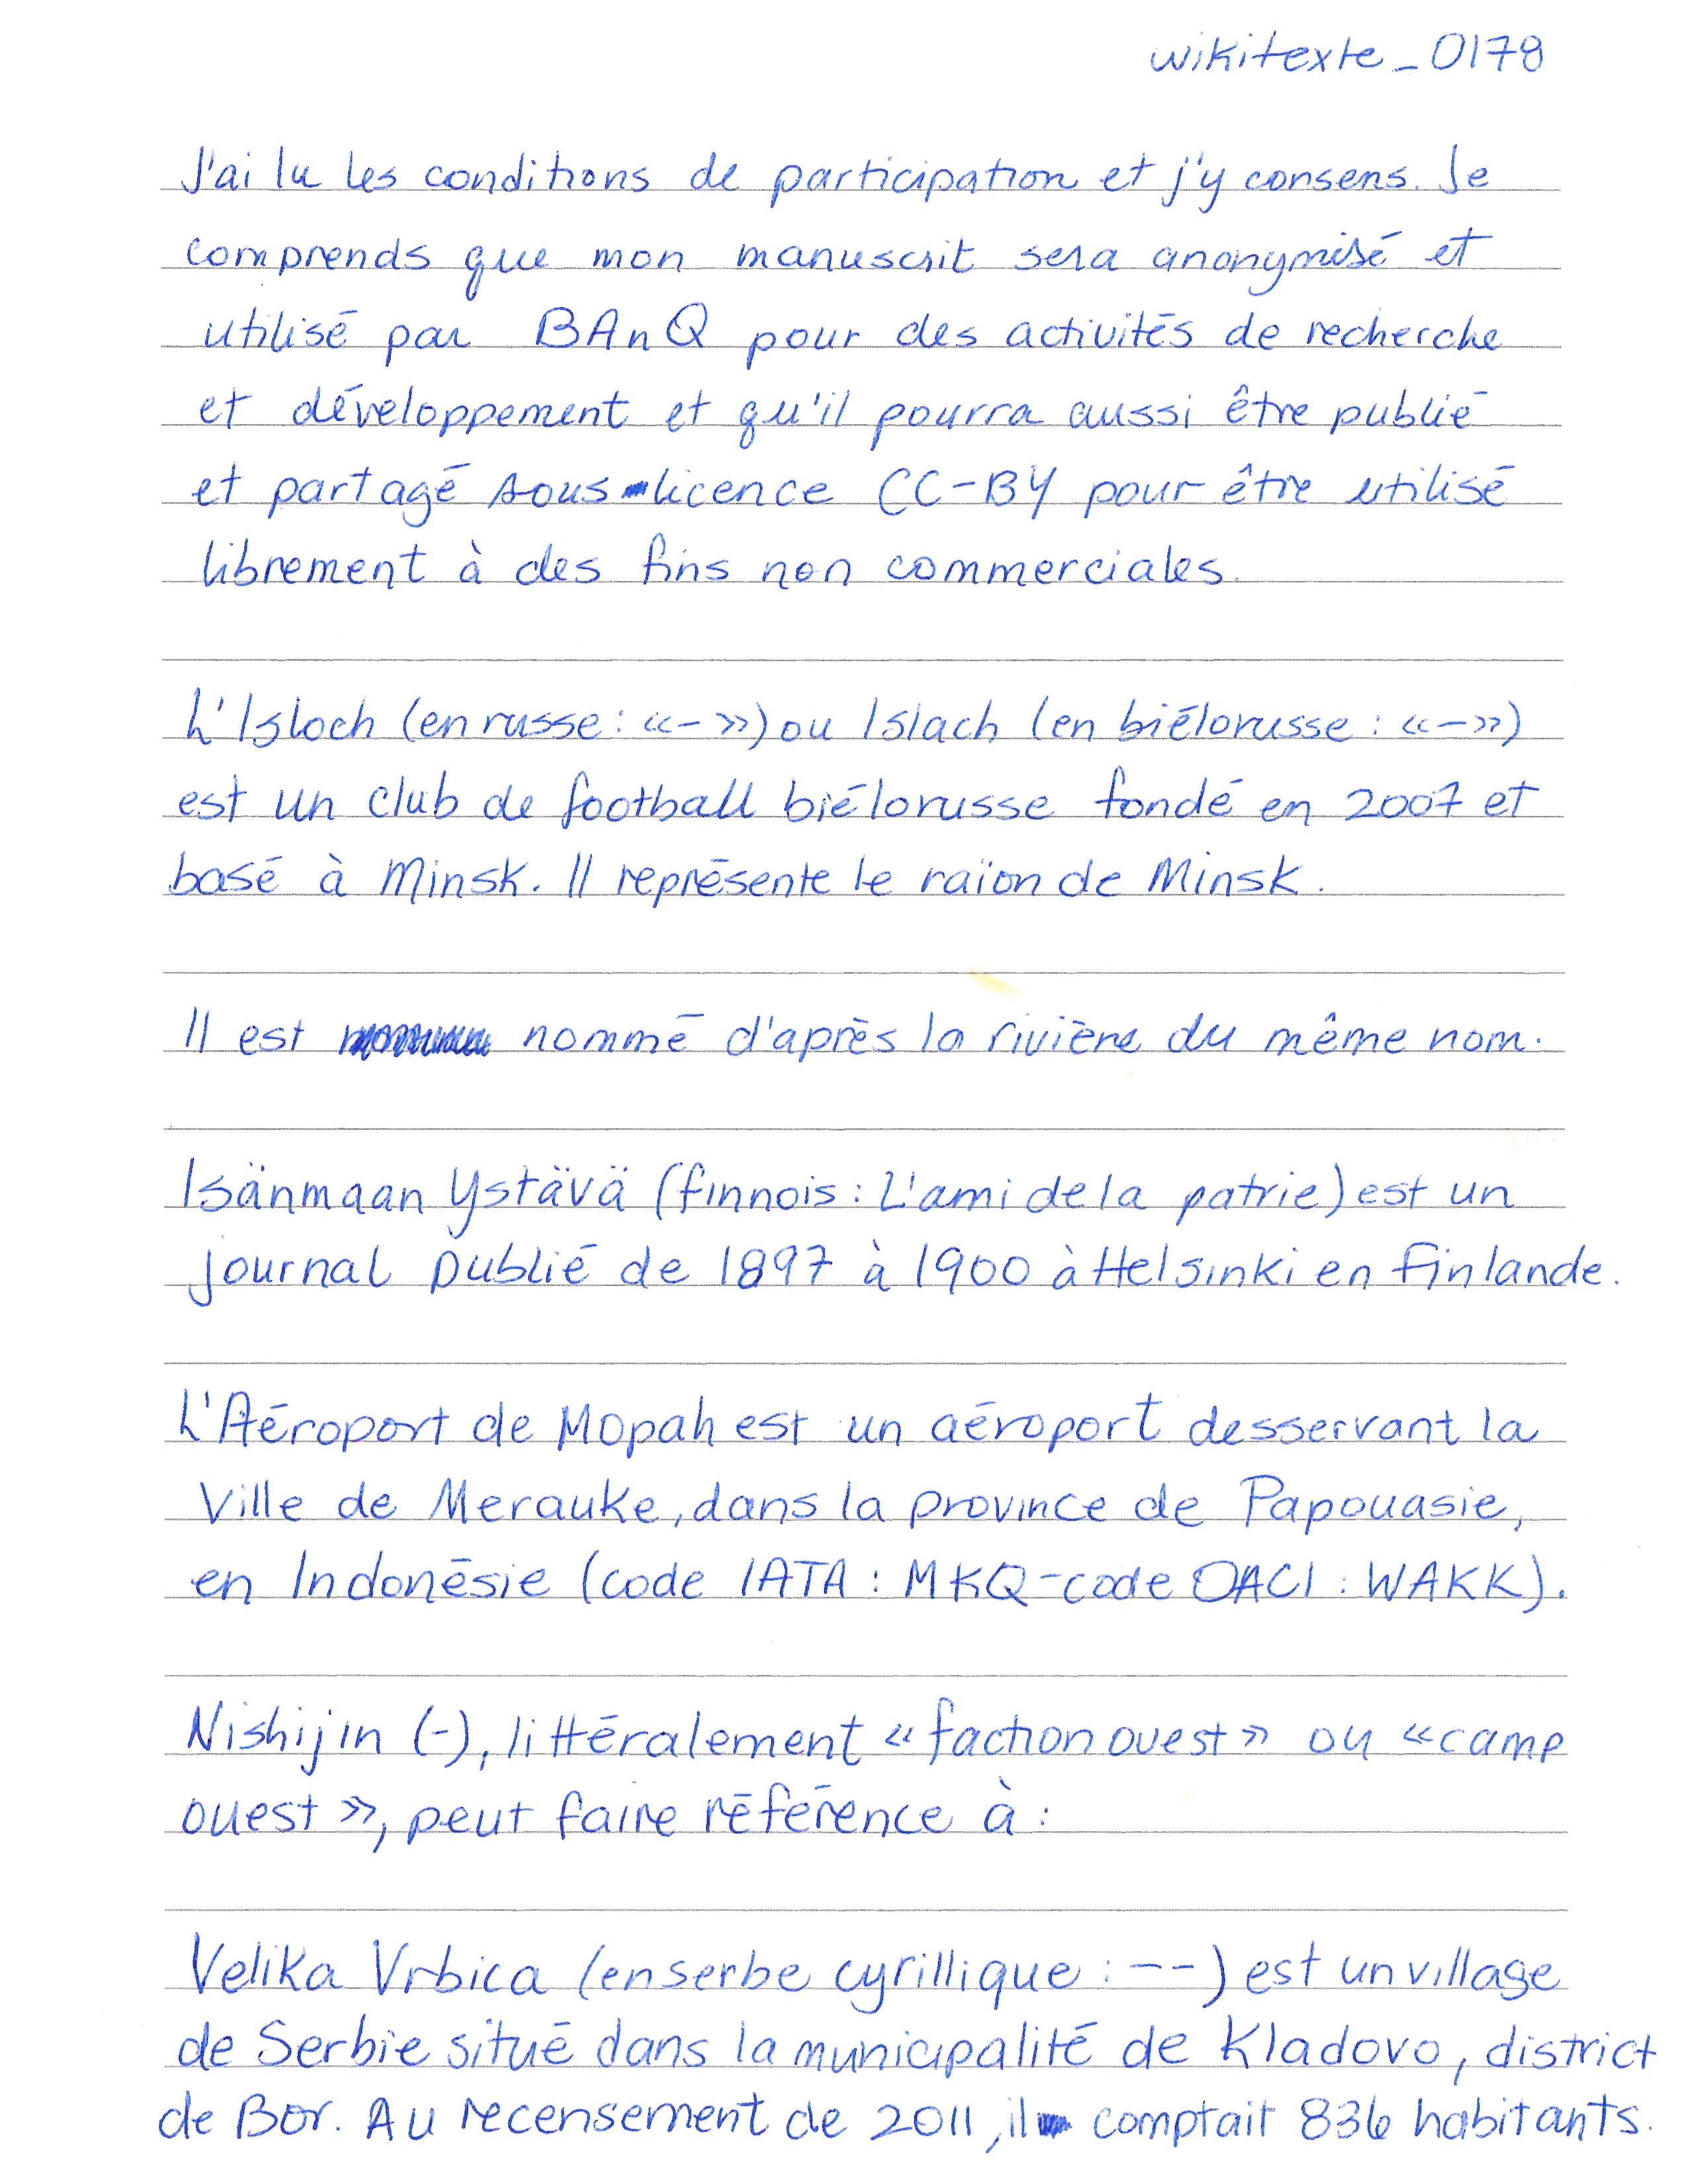 wikitexte_0178
J'ai lu les conditions de participation et j'y consens. Je
comprends que mon manuscrit sera anonymisé et
utilisé par BAnQ pour des activités de recherche
et développement et qu'il pourra aussi être publié
et partagé sous licence CC-BY pour être utilisé
librement à des fins non commerciales.
L'Isloch (en russe : «-») ou Islach (en biélorusse : «-»)
est un club de football biélorusse fondé en 2007 et
basé à Minsk. Il représente le raïon de Minsk.
Il est nommé d'après la rivière du même nom.
Isänmaan Ystävä (finnois : L'ami de la patrie) est un
journal publié de 1897 à 1900 à Helsinki en Finlande.
L'Aéroport de Mopah est un aéroport desservant la
Ville de Merauke, dans la province de Papouasie,
en Indonésie (code IATA : MKQ-code OACI : WAKK).
Nishijin (-), littéralement «faction ouest» ou «camp
ouest», peut faire référence à :
Velika Vrbica (en serbe cyrillique : --) est un village
de Serbie situé dans la municipalité de Kladovo, district
de Bor. Au recensement de 2011, il comptait 836 habitants.